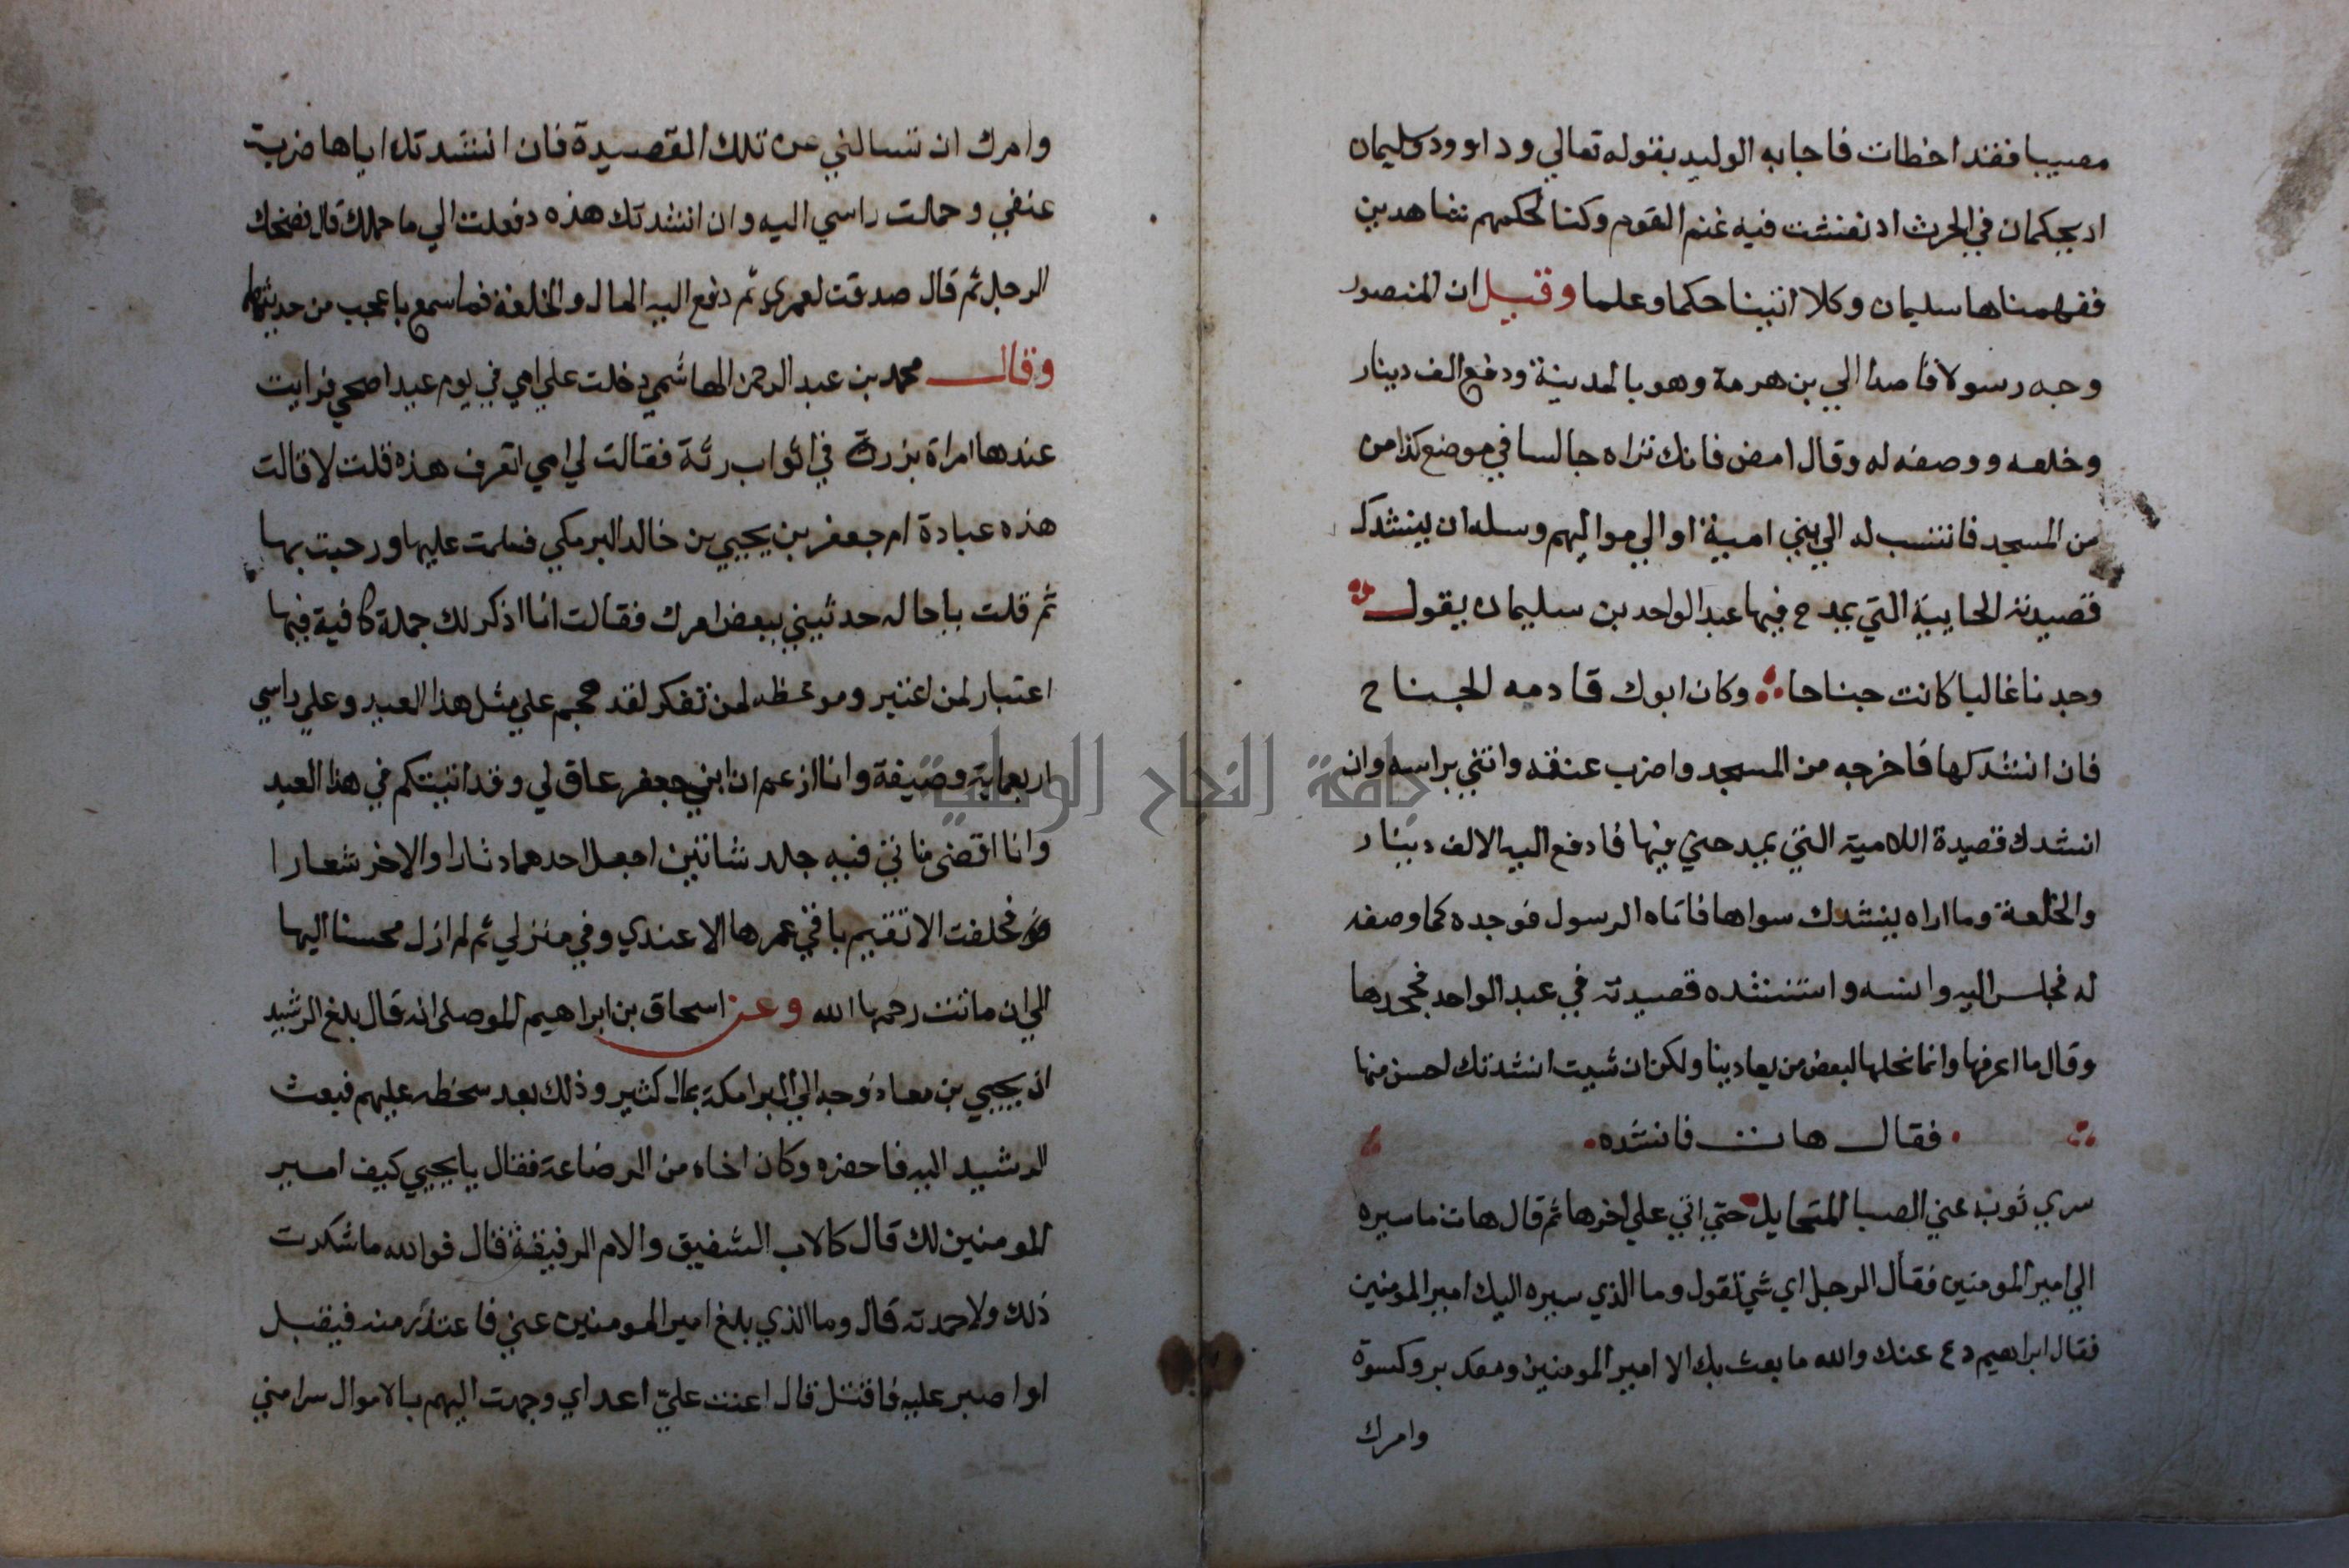 مصيبا فقد اخطات فاجابه الوليد بقوله تعالي وداوود وسليمان
اد يحكمان في الحرث اد نفشت فيه غنم القوم وكنا لحكمهم شاهدين
ففهمناها سليمان وكلا اتينا حكما وعلما وقيل ان المنصور
وجه رسولا قاصدا الي بن هرمة وهو بالمدينة ودفع الف دينار
وخلعه ووصفه له وقال امض فانك تراه جالسا في موضع كذا من
من المسجد فانتسب له الي بني امية او الي مواليهم وسله ان ينشدك
قصيدته الحايية التي يمدح فيها عبد الواحد بن سليمان يقول
وجدنا غالبا كانت جناحا وكان ابوك قادمه الجناح
فان انشدكها فاخرجه من المسجد واضرب عنقه واتني براسه وان
انشدك قصيدة اللامية التي يمدحني فيها فادفع اليه الالف دينار
والخلعة وما اراه ينشدك سواها فاتاه الرسول فوجده كما وصفه
له فجلس اليه وانسه واستنشده قصيدته في عبد الواحد فجحدها
وقال ما اعرفها وانما نحلها لبعض من يعادينا ولكن ان شيت انشدتك احسن منها
فقال هات فانشده
سري ثوبه عني الصبا المتحايل حتي اتي علي اخرها ثم قال هات ما سيره
الي امير المومنين فقال الرجل اي شي تقول وما الذي سيره اليك امير المومنين
فقال ابراهيم دع عنك والله ما بعث بك الا امير المومنين ومعك بر وكسوة
وامرك
وامرك ان تسالني عن تلك القصيدة فان انشدتك اياها ضربت
عنقي وحملت راسي اليه وان انشدتك هذه دفعلت الي ما حملك قال فضحك
الرجل ثم قال صدقت لعمري ثم دفع اليه المال والخلعة فما سمع باعجب من حديثهما
وقال محمد بن عبد الرحمن الهاشمي دخلت علي امي في يوم عيد اضحي فرايت
عندها امراة بزرة في اثواب رثة فقالت لي امي اتعرف هذه قلت لا قالت
هذه عبادة ام جعفر بن يحيي بن خالد البرمكي فسلمت عليها ورحبت بها
ثم قلت يا خاله حدثيني ببعض امرك فقالت انا اذكر لك جملة كافية فيها
اعتبار لمن اعتبر وموعظه لمن تفكر لقد هجم علي مثل هذا العيد وعلي راسي
اربعماية وصيفة وانا ازعم ان ابني جعفر عاق لي وقد اتيتكم في هذا العيد
وانا اقضى مناني فيه جلد شاتين اجعل احدهما دثارا والاخر شعارا
فحلفت الا تقيم باقي عمرها الا عندي وفي منزلي ثم لم ازل محسنا اليها
الي ان ماتت رحمها الله وعن اسحاق بن ابراهيم الموصلى انه قال بلغ الرشيد
ان يحيي بن معاد وجه الي البرامكة بمال كثير وذلك بعد سخطه عليهم فبعث
الرشيد اليه فاحضره وكان اخاه من الرضاعة فقال يا يحيي كيف امير
المومنين لك قال كالاب الشفيق والام الرفيقة قال فوالله ما شكرت
ذلك ولا حمدته قال وما الذي بلغ امير المومنين عني فاعتذر منه فيقبل
او اصبر عليه فاقتل قال اعنت عليّ اعداي وجهت اليهم بالاموال سرا مني
جامعة النجاح الوطنية